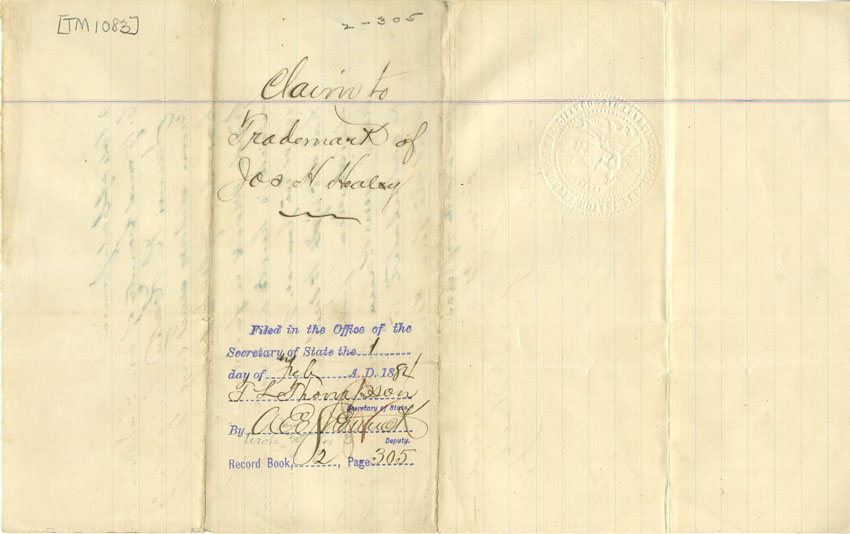 [TM1083]
2-305
Claim to
Trademark of
Jos H Healey
Filed in the Office of the
Secretary of State the 1
day of Feb A. D. 1884
T L Thompson
Secretary of State.
By A E
Deputy.
Record Book, 2, Page 305